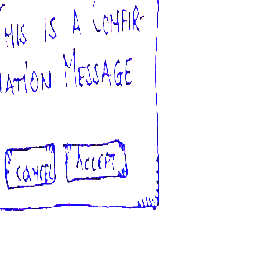 THIS IS A CONFIR-
MATION MESSAGE
CANCEL ACCEPT